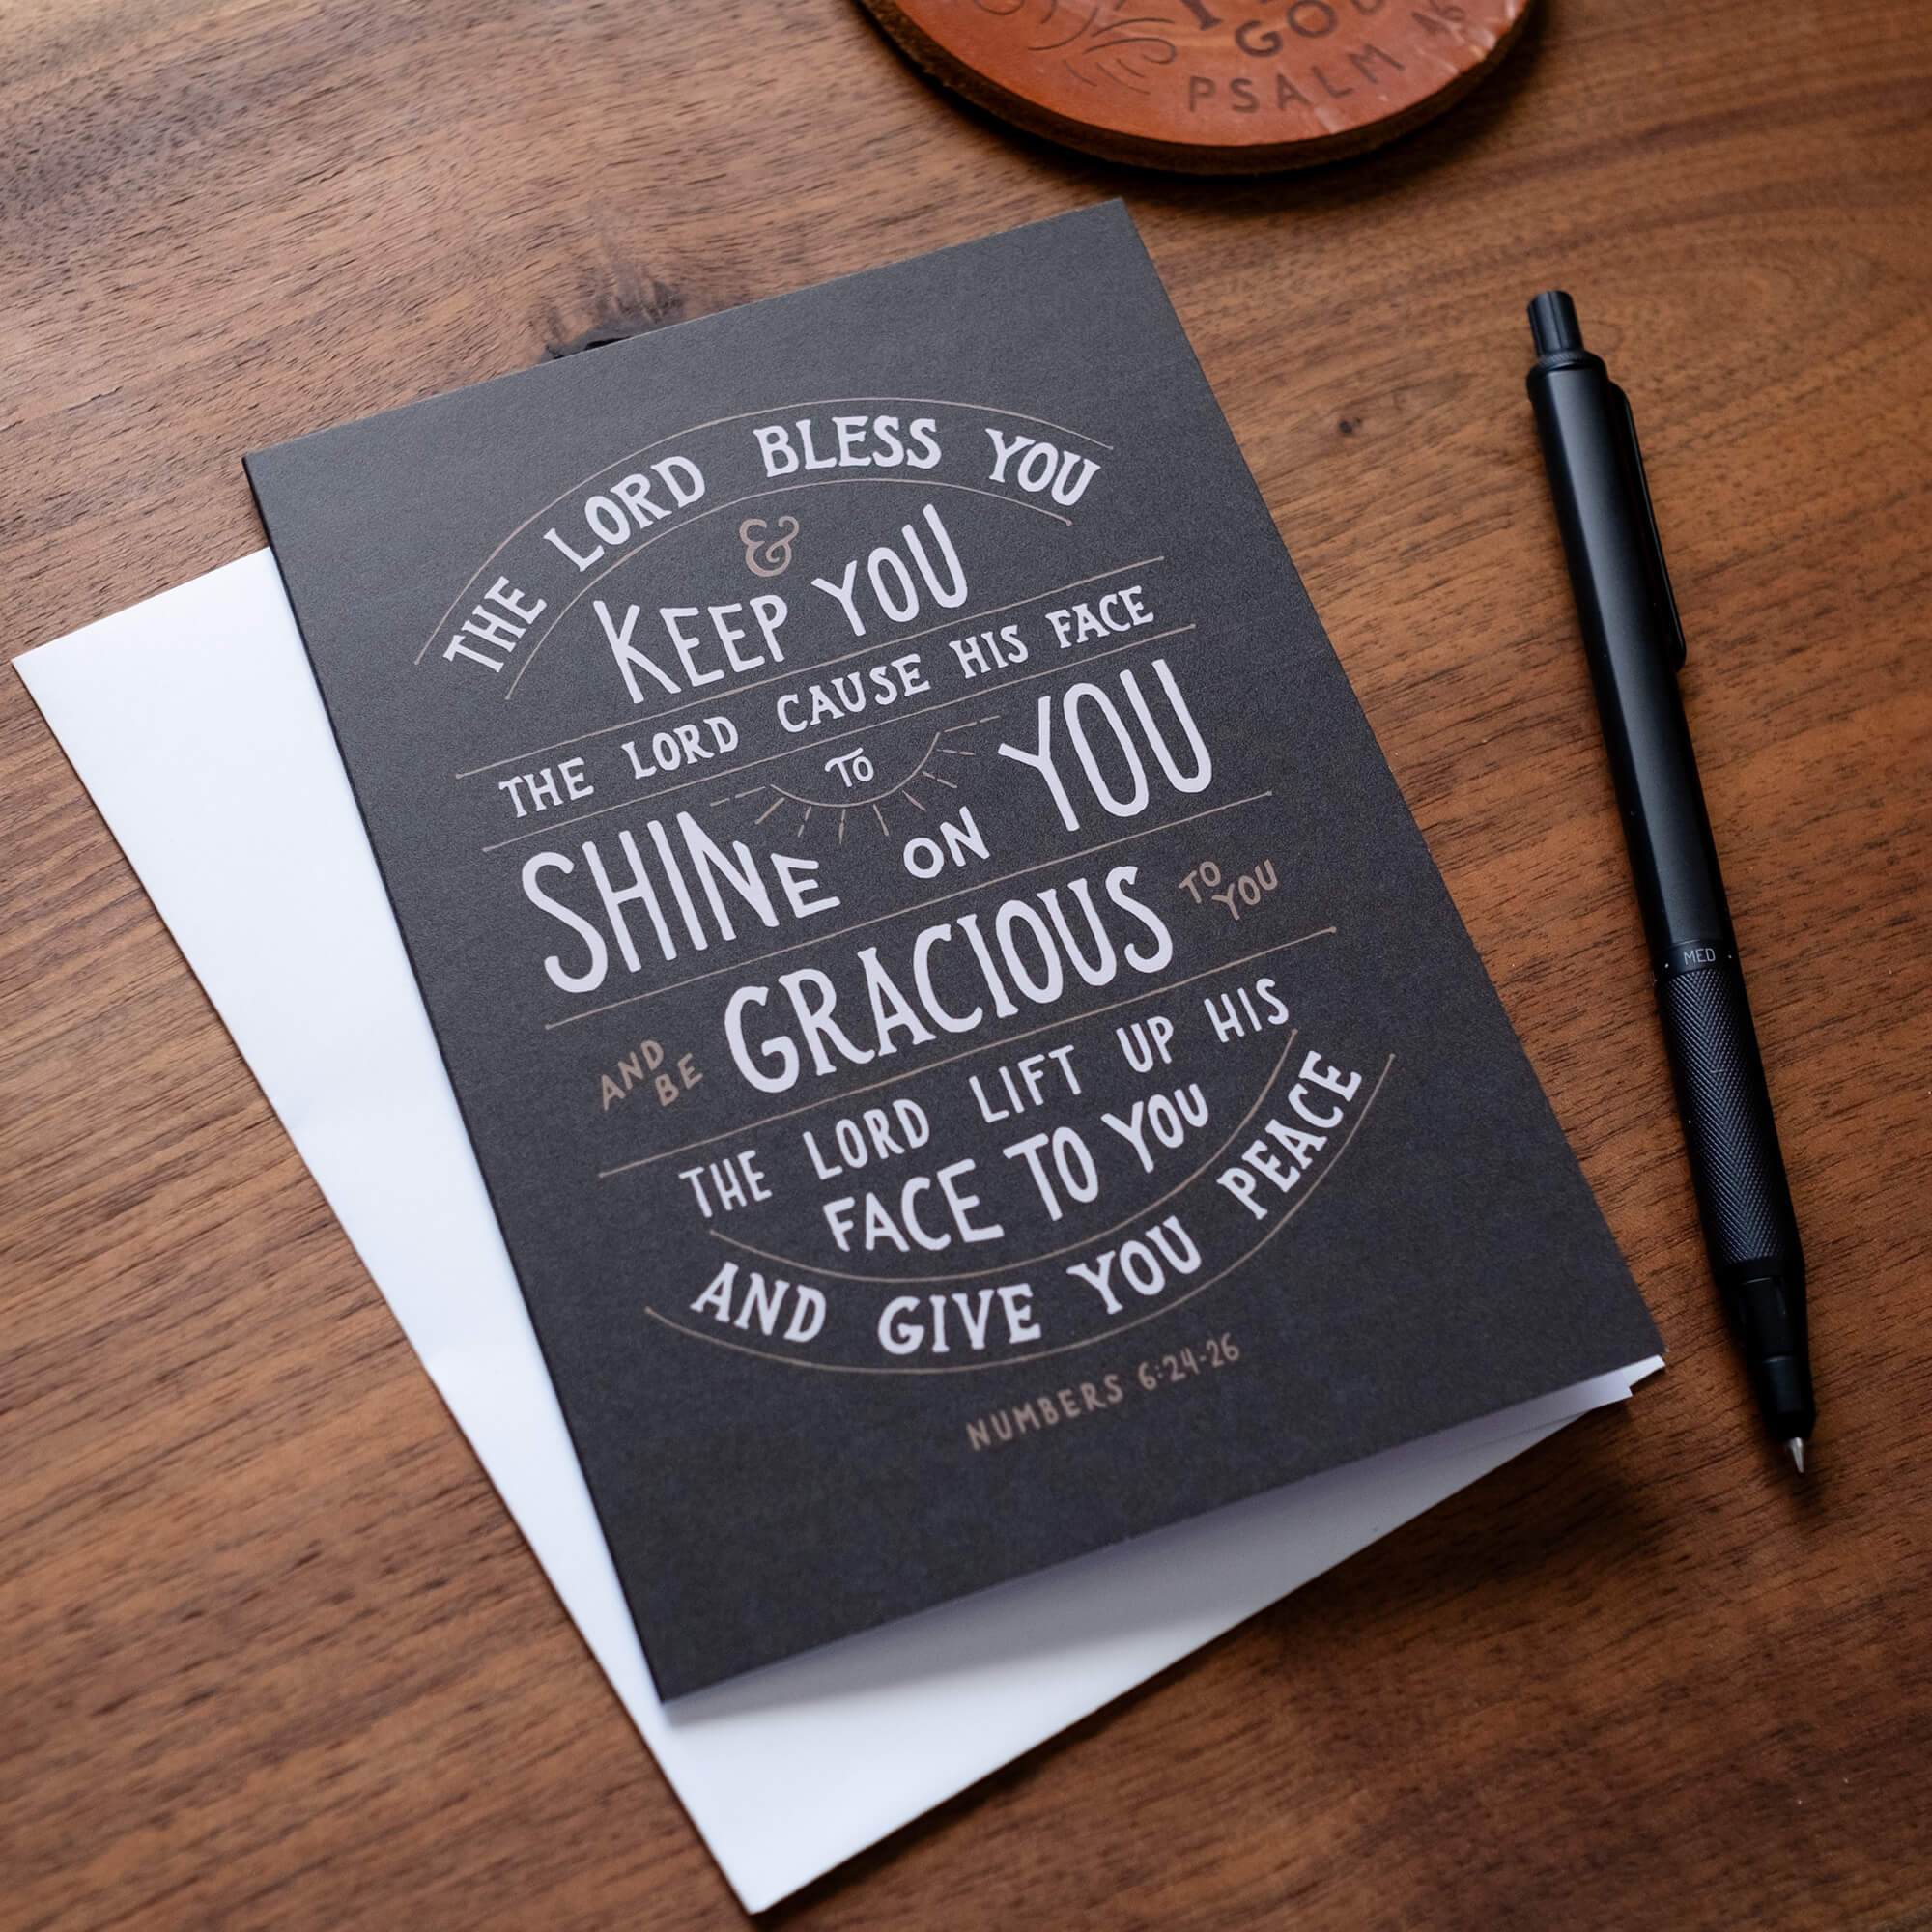 GOD
PSALM 46
THE LORD BLESS YOU
&
KEEP YOU
THE LORD CAUSE HIS FACE
TO
SHINE ON YOU
AND BE GRACIOUS TO YOU
THE LORD LIFT UP HIS
FACE TO YOU
AND GIVE YOU PEACE
NUMBERS 6:24-26
MED